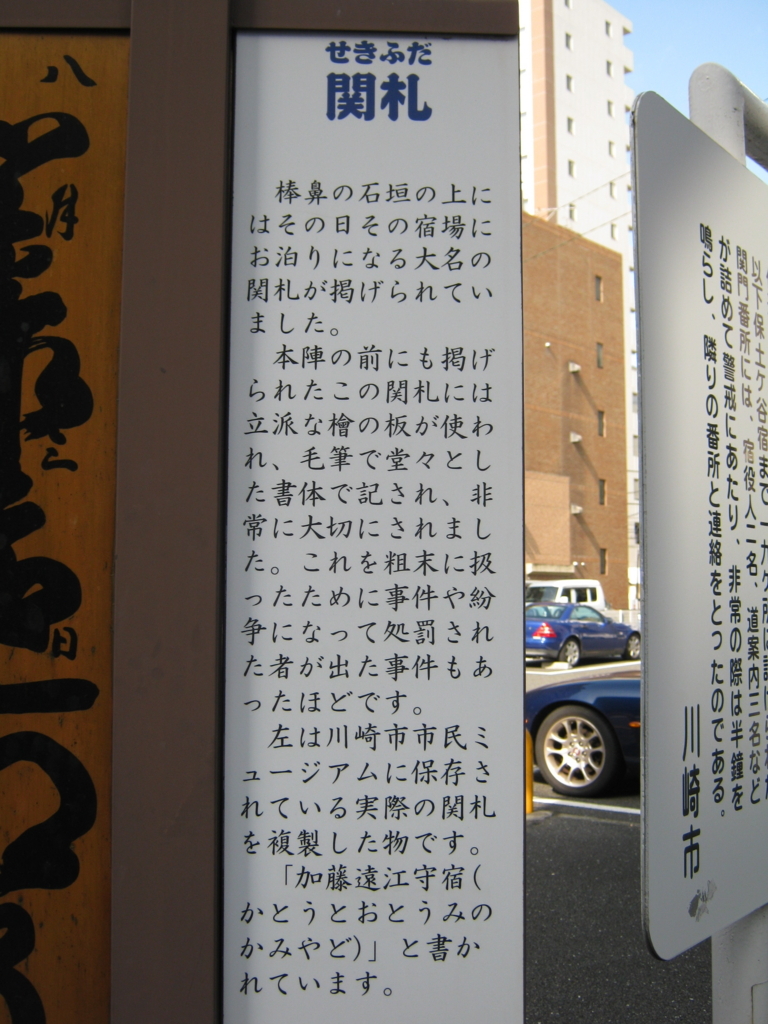 せきふだ
関札
棒鼻の石垣の上に
はその日その宿場に
お泊りになる大名の
関札が掲げられてい
ました。
本陣の前にも掲げ
られたこの関札には
立派な檜の板が使わ
れ、毛筆で堂々とし
た書体で記され、非
常に大切にされまし
た。これを粗末に扱
ったために事件や紛
争になって処罰され
た者が出た事件もあ
ったほどです。
左は川崎市市民ミ
ュージアムに保存さ
れている実際の関札
を複製した物です。
「加藤遠江守宿(
かとうとおとうみの
かみやど)」と書か
れています。
八
月
二
日
関門番所には、宿役人二名、道案内三名など
が詰めて警戒にあたり、非常の際は半鐘を
鳴らし、隣りの番所と連絡をとったのである。
川崎市